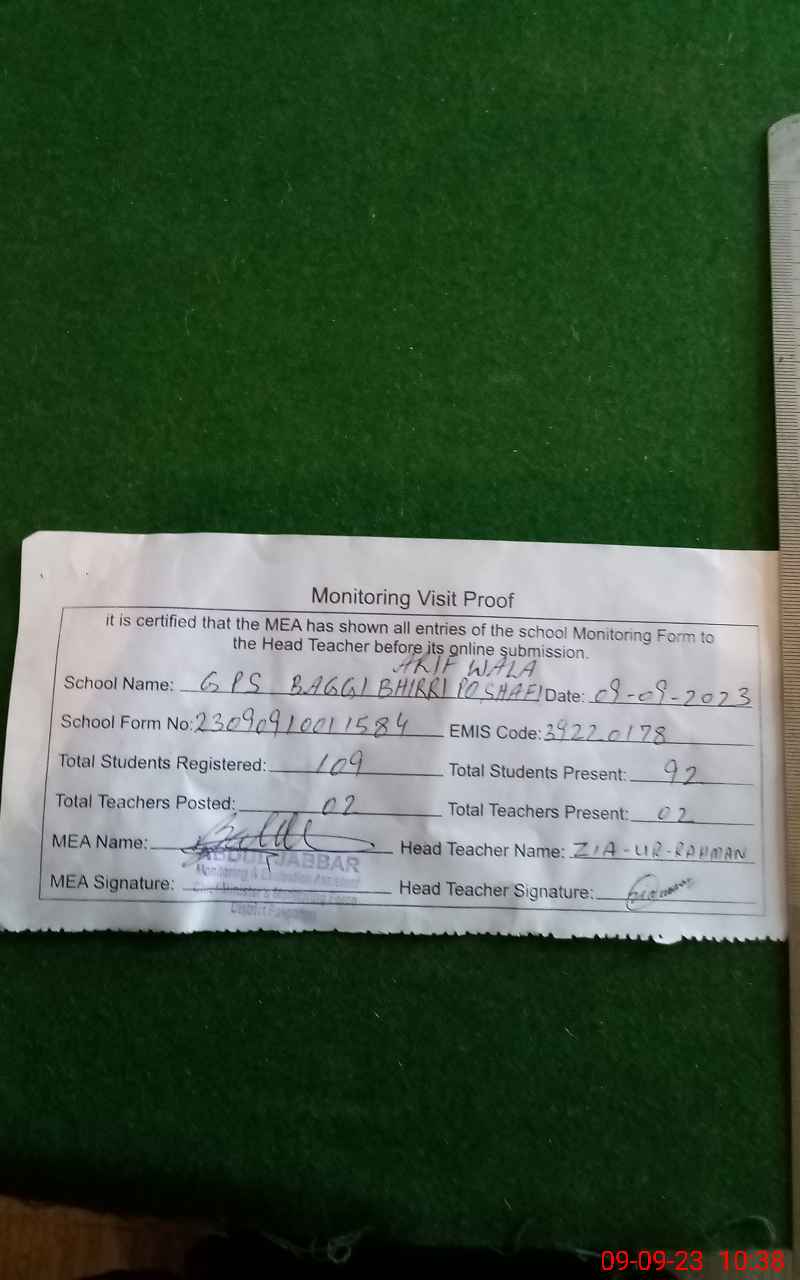 Monitoring Visit Proof
it is certified that the MEA has shown all entries of the school Monitoring Form to
the Head Teacher before its online submission.
ARIF WALA
School Name: GPS BAGGI BHIRRI PO SHAFI Date: 09-09-2023
School Form No: 23090910011584 EMIS Code: 39220178
Total Students Registered: 109 Total Students Present: 92
Total Teachers Posted: 02 Total Teachers Present: 02
MEA Name: Head Teacher Name: ZIA-UR-RAHMAN
ABDUL JABBAR
Monitoring & Evaluation Assistant
MEA Signature: Head Teacher Signature:
Chief Minister's Monitoring Force
District
09-09-23 10:38